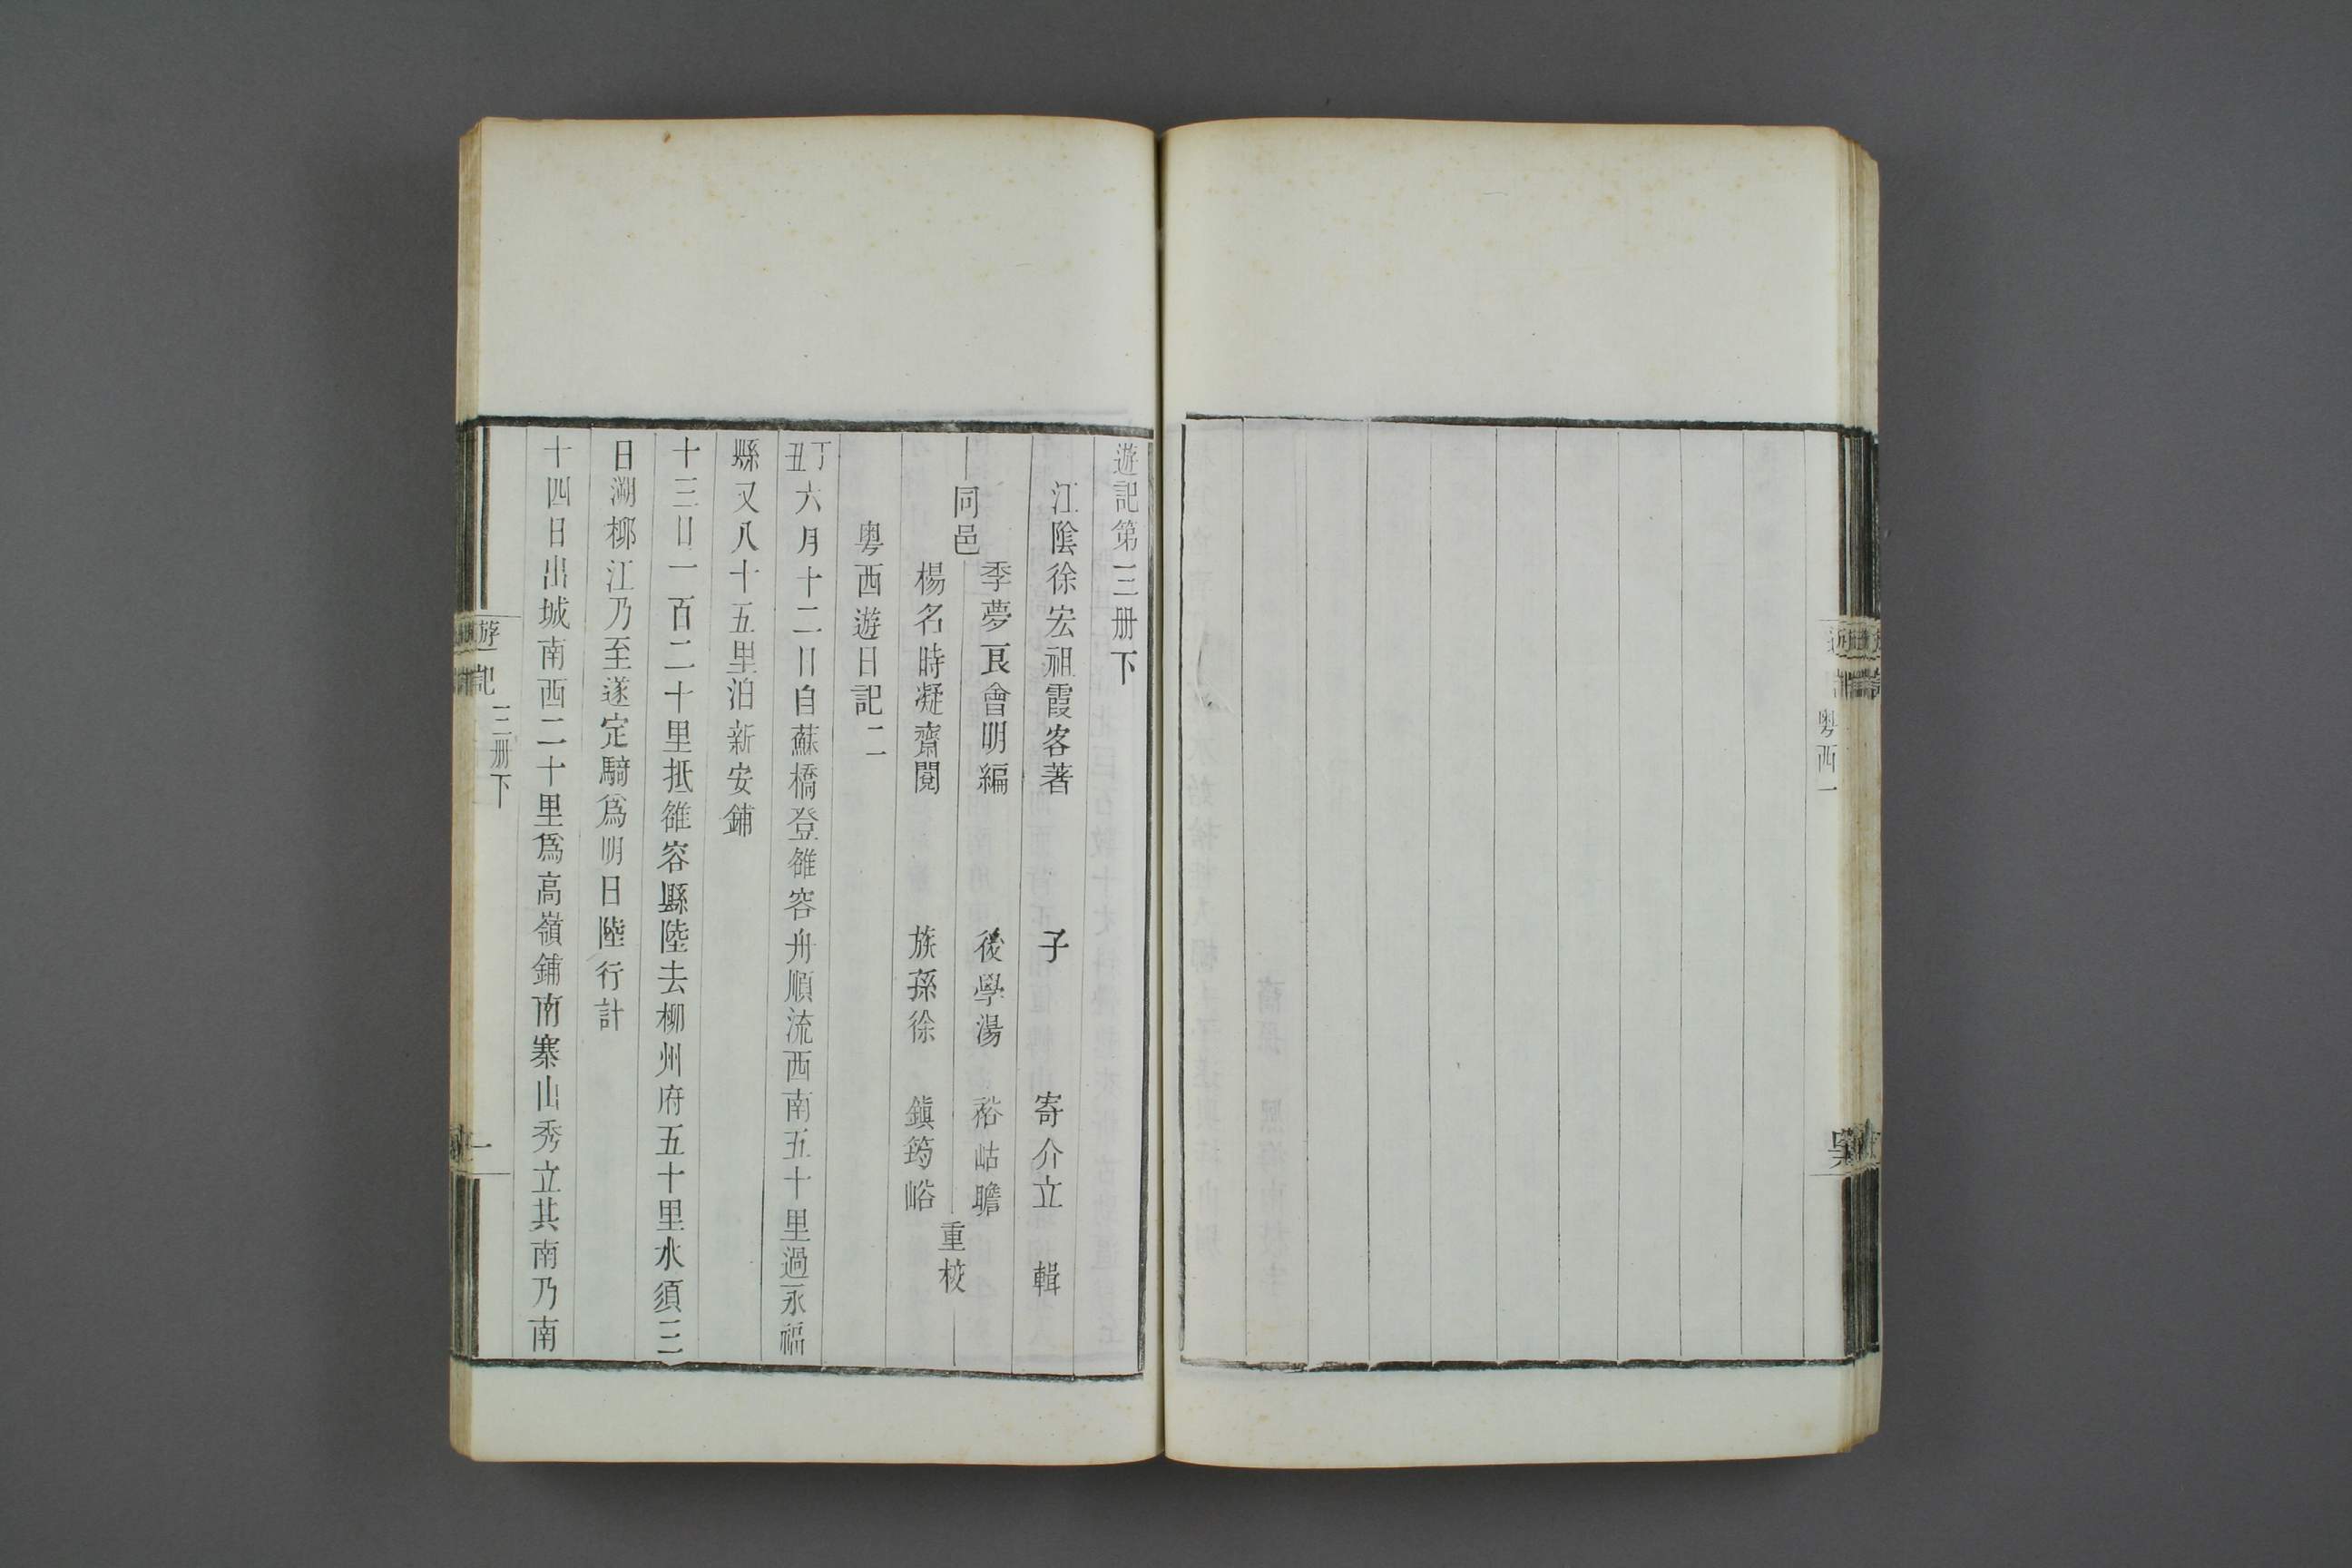 粤西一
遊記第三册下
江陰徐宏祖霞客著 子 寄介立 輯
同邑
季夢良會明編 後學湯 裕岵瞻
楊名時凝齋閱 族孫徐 鎮筠峪
重校
粤西遊日記二
丁丑六月十二日自蘇橋登雒容舟順流西南五十里過永福
縣又八十五里泊新安鋪
十三日一百二十里抵雒容縣陸去柳州府五十里水須三
日溯栁江乃至遂定騎爲明日陸行計
十四日出城南西二十里爲高嶺鋪南寨山秀立其南乃南
遊記
三册下
一